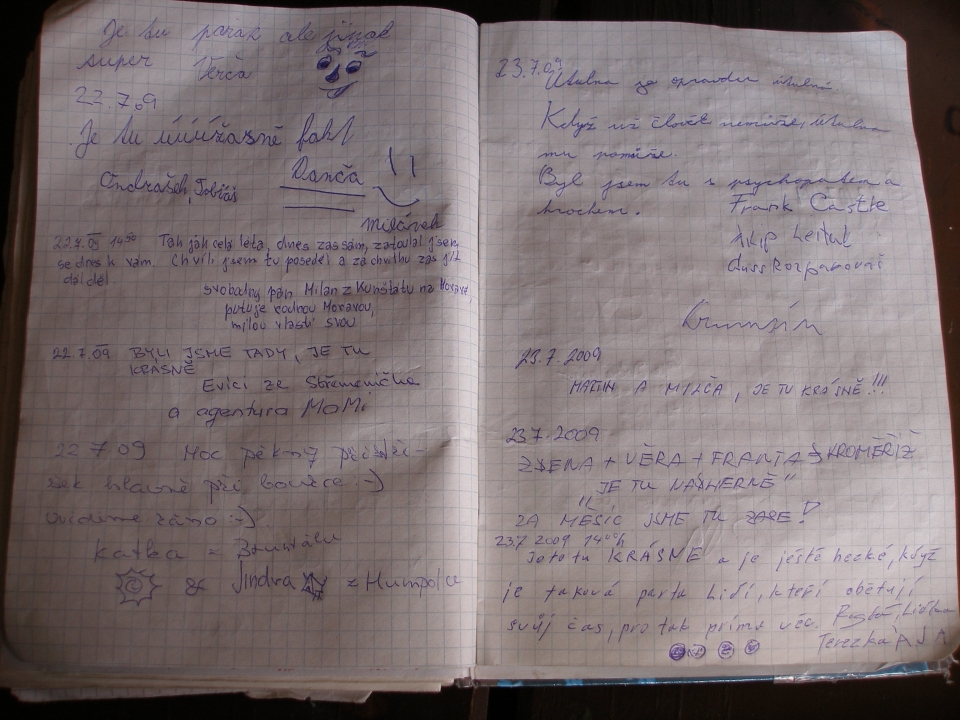 Je tu pařák ale jinak
super Verča
22.7.09
Je tu úúúúžasně fakt
Danča !!
Ondrášek, Tobiáš
Miláček
22.7.09 14⁵⁰ Tak jak celá léta, dnes zas sám, zatoulal jsem
se dnes k vám. Chvíli jsem tu poseděl a za chvilku zas jít
dál děl
svobodný pán Milan z Kunštátu na Moravě,
putuje rodnou Moravou,
milou vlastí svou
22.7.09 BYLI JSME TADY, JE TU
KRÁSNĚ
Evíci ze Střemeníčka
a agentura MoMi
22.7.09 Moc pěkný přístře-
šek hlavně při bouřce :-)
uvidíme ráno :-)
Katka z Bruntálu
& Jindra z Humpolce
23.7.09
Útulna je opravdu útulná.
Když už člověk nemůže, útulna
mu pomůže.
Byl jsem tu s psychopatem a
hrochem.
Frank Castle
23.7.2009
MARTIN A MILČA, JE TU KRÁSNĚ!!!
23.7.2009
ZDENA + VĚRA + FRANTA Z KROMĚŘÍŽ
"JE TU NÁDHERNĚ"
ZA MĚSÍC JSME TU ZASE!
23.7 2009 14⁰⁰h
Je to tu KRÁSNÉ a je ještě hezké, když
je taková parta lidí, kteří obětují
svůj čas, pro tak prima věc.
Liduška
Terezka A J A